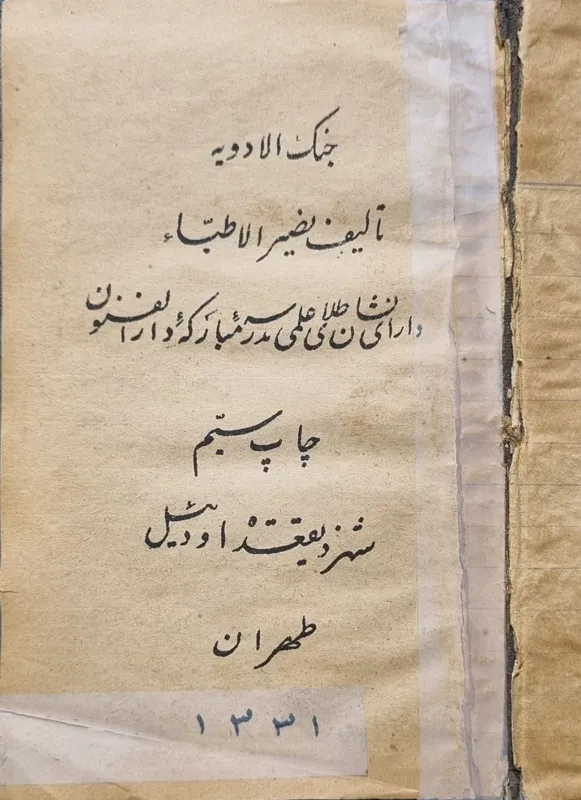 جنک الادویه
تألیف نصیر الاطبّاء
دارای نشان طلای علمی مدرسه مبارکهٔ دارالفنون
چاپ سیّم
شهر ذیقعده اودئیل
طهران
۱۳۳۱